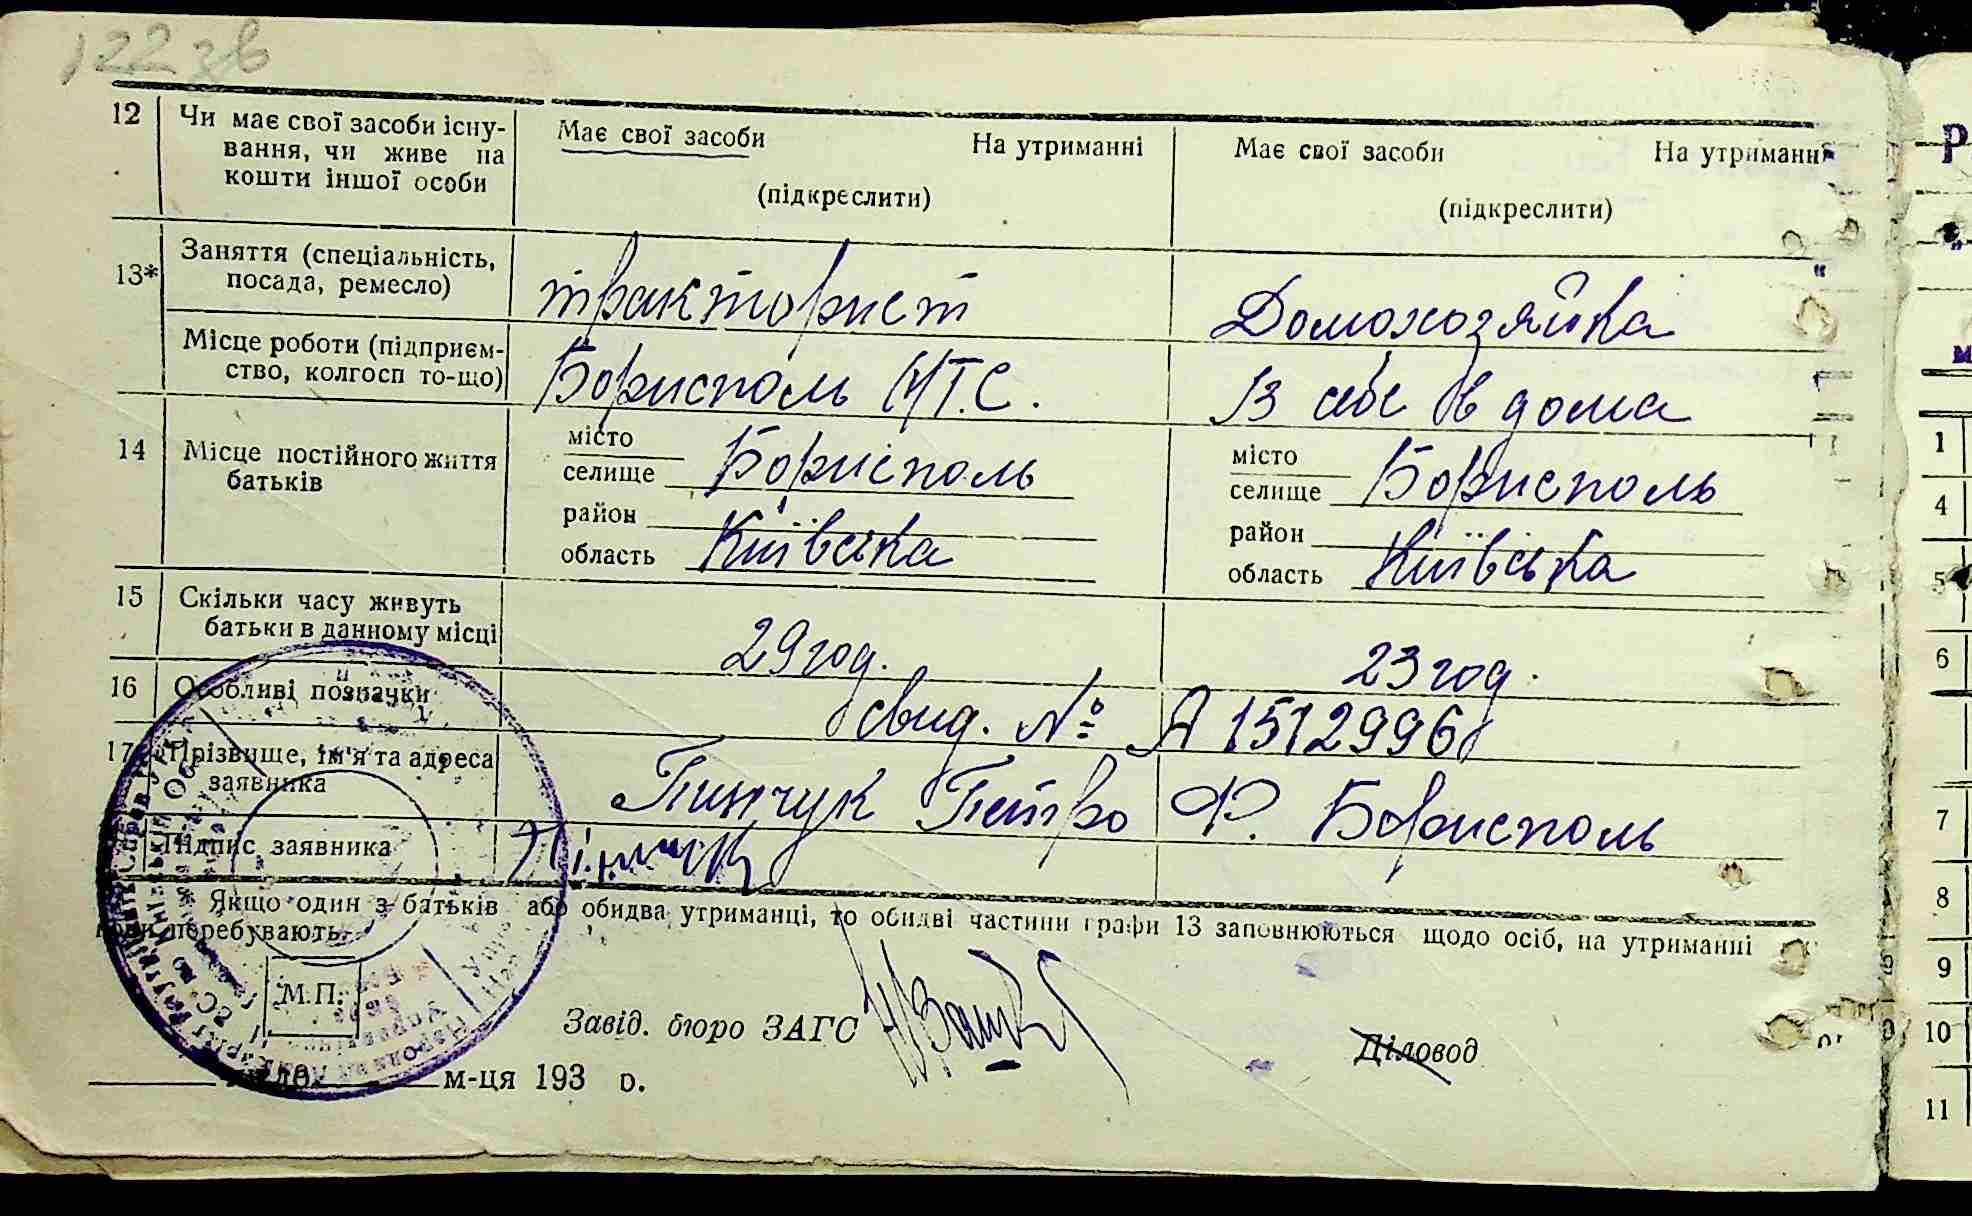 122 зв
12 Чи має свої засоби існу- Має свої засоби На утриманні Має свої засоби На утриманн
вання, чи живе на
кошти іншої особи (підкреслити) (підкреслити)
Заняття (спеціальність,
13* посада, ремесло) тракторист Домохозяйка
Місце роботи (підприєм-
ство, колгосп то-що) Борисполь М.Т.С. В себе в дома
14 Місце постійного життя місто місто
батьків селище Борисполь селище Борисполь
район район
область Київська область Київська
15 Скільки часу живуть
батьки в данному місці 29 год. 23 год.
16 Особливі позначки свид. № А 1512996
17 Прізвище, ім'я та адреса
заявника Пинчук Петро Ф. Борисполь
Підпис заявника
Якщо один з батьків або обидва утриманці, то обидві частини графи 13 заповнюються щодо осіб, на утриманні
перебувають.
М.П.
Завід. бюро ЗАГС Діловод
м-ця 193 р.
1
4
5
6
7
8
9
10
11